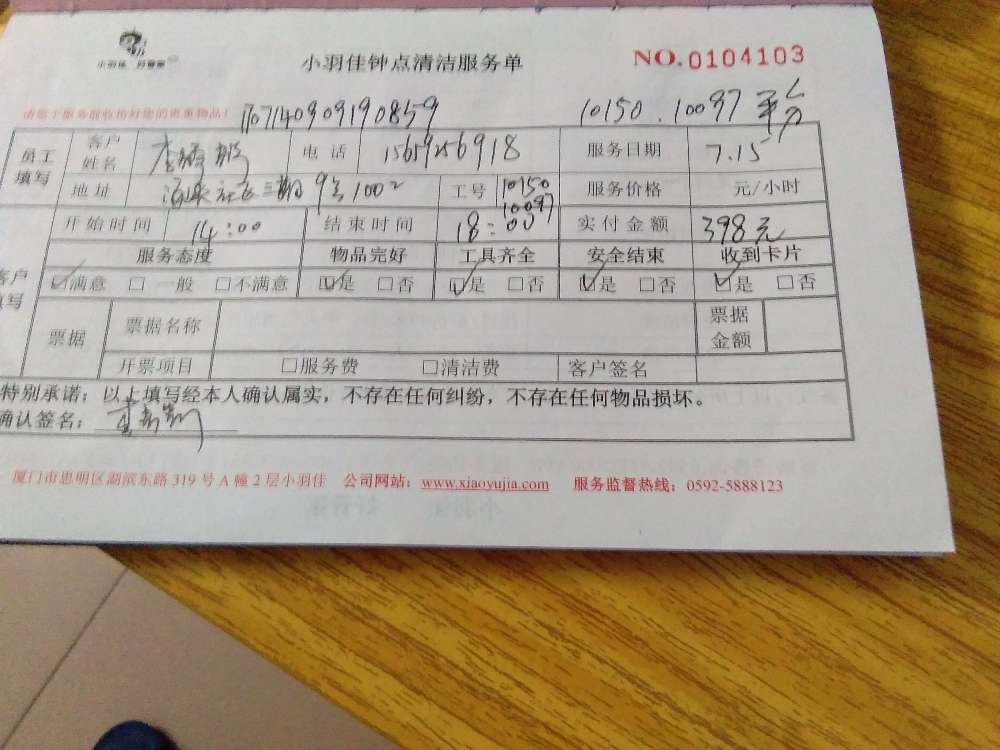 小羽佳 好管家
小羽佳钟点清洁服务单
NO.0104103
请您于服务前收拾好您的贵重物品!
1707140909190859
10150.10097 平台
员工填写 客户姓名 李 电话 15659256918 服务日期 7.15
地址 三期9号1002 工号 10150 10097 服务价格 元/小时
客户填写 开始时间 14:00 结束时间 18:00 实付金额 398元
服务态度 物品完好 工具齐全 安全结束 收到卡片
☑满意 □一般 □不满意 ☑是 □否 ☑是 □否 ☑是 □否 ☑是 □否
票据 票据名称 票据金额
开票项目 □服务费 □清洁费 客户签名
特别承诺：以上填写经本人确认属实，不存在任何纠纷，不存在任何物品损坏。
确认签名：李
厦门市思明区湖滨东路319号A幢2层小羽佳 公司网站：www.xiaoyujia.com 服务监督热线：0592-5888123